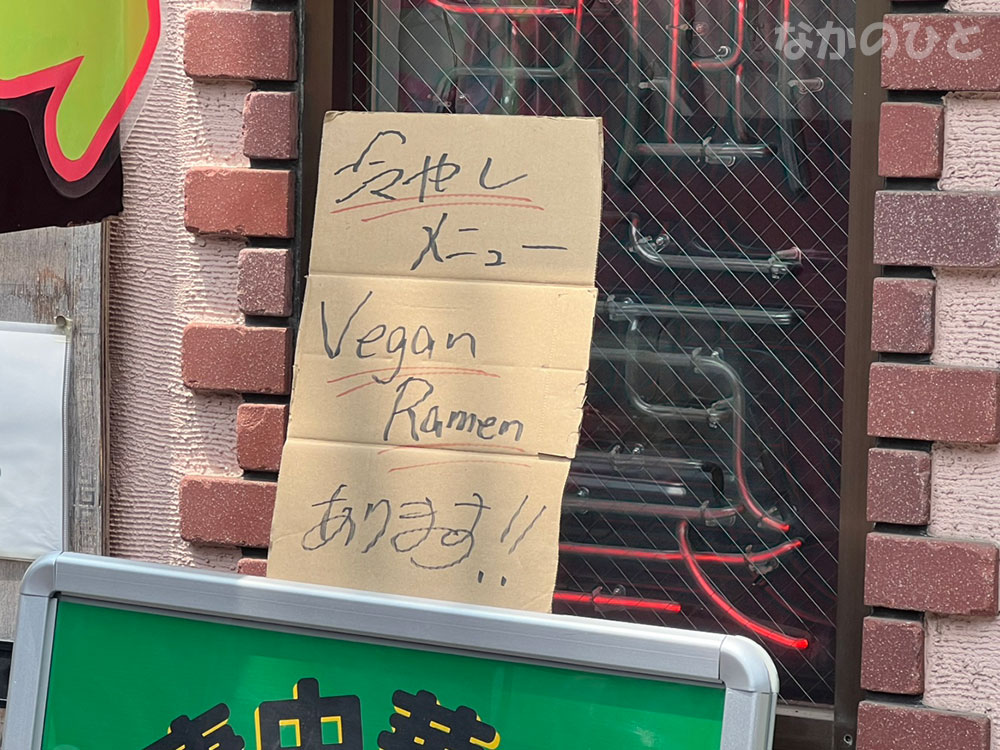 なかのひと
冷やし
メニュー
Vegan
Ramen
あります!!
中華